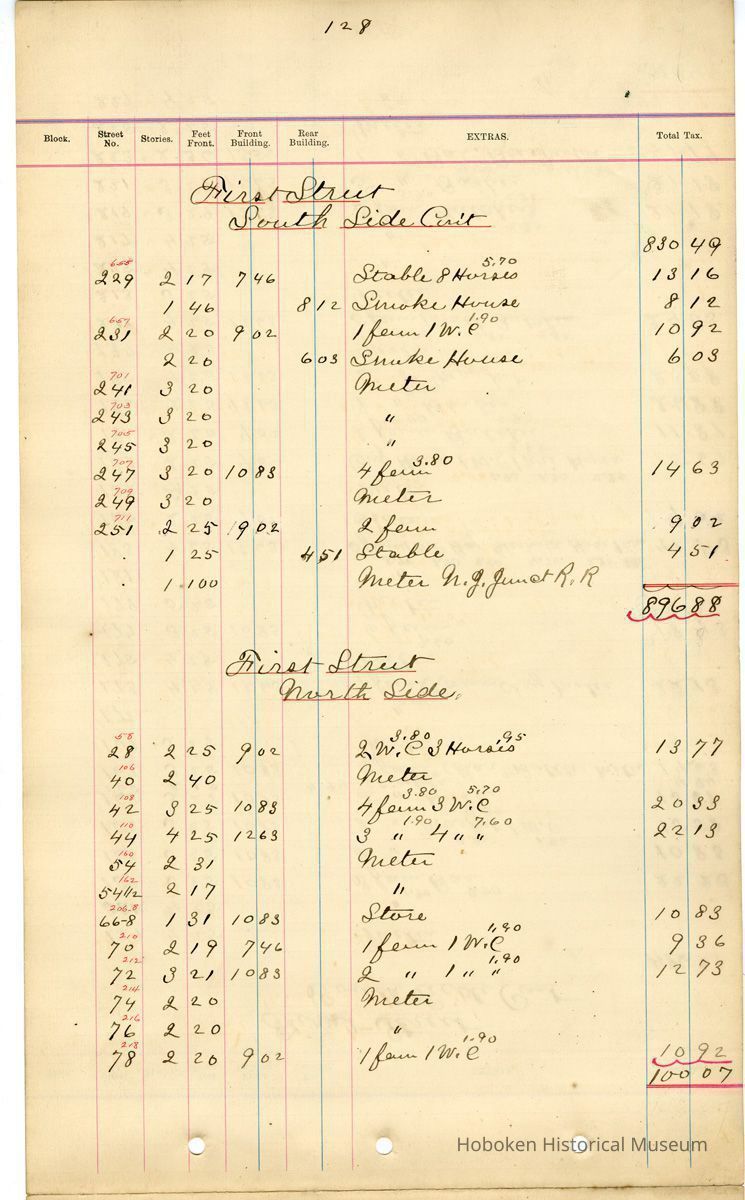 128
Block. Street No. Stories. Feet Front. Front Building. Rear Building. EXTRAS. Total Tax.
First Street
South Side Con't
830 49
655 5.70
229 2 17 7 46 Stable 8 Horses 13 16
1 46 8 12 Smoke House 8 12
657 1.90
231 2 20 9 02 1 fam 1 W.C 10 92
2 20 6 03 Smoke House 6 03
701
241 3 20 Meter
703
243 3 20 "
705
245 3 20 "
707 3.80
247 3 20 10 83 4 fam 14 63
709
249 3 20 Meter
711
251 2 25 9 02 2 fam 9 02
1 25 4 51 Stable 4 51
1 100 Meter N.J. Junct R.R
896 88
First Street
North Side.
58 3.80 95
28 2 25 9 02 2 W.C 3 Horses 13 77
106
40 2 40 Meter
108 3.80 5.70
42 3 25 10 83 4 fam 3 W.C 20 33
110 1.90 7.60
44 4 25 12 63 3 " 4 " " 22 13
160
54 2 31 Meter
162
54 1/2 2 17 "
206-8
66-8 1 31 10 83 Store 10 83
210 1.90
70 2 19 7 46 1 fam 1 W.C 9 36
212 1.90
72 3 21 10 83 2 " 1 " " 12 73
214
74 2 20 Meter
216
76 2 20 "
218 1.90
78 2 20 9 02 1 fam 1 W.C 10 92
100 07
Hoboken Historical Museum